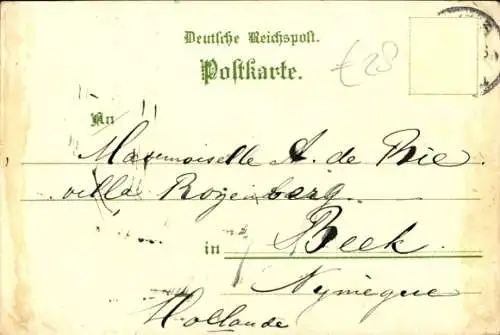 Deutsche Reichspost.
Postkarte.
£28
An
Mademoiselle A. de Brie.
villa Rozenberg
in Beek.
Nymègue
Hollande